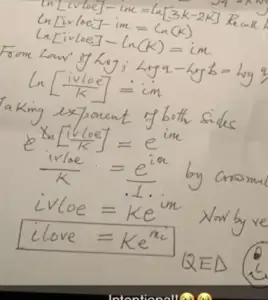 ln[ivloe] - im = ln[3K-2K] Recall
ln[ivloe] - im = ln(K)
ln[ivloe] - ln(K) = im
From Law of Log; Log a - Log b = Log
ln[ivloe/K] = im
Taking exponent of both sides
e^ln[ivloe/K] = e^im
ivloe/K = e^im/1 by crossmul
ivloe = Ke^im Now by re
ilove = Ke^mi
QED
Intentional!!😂😂